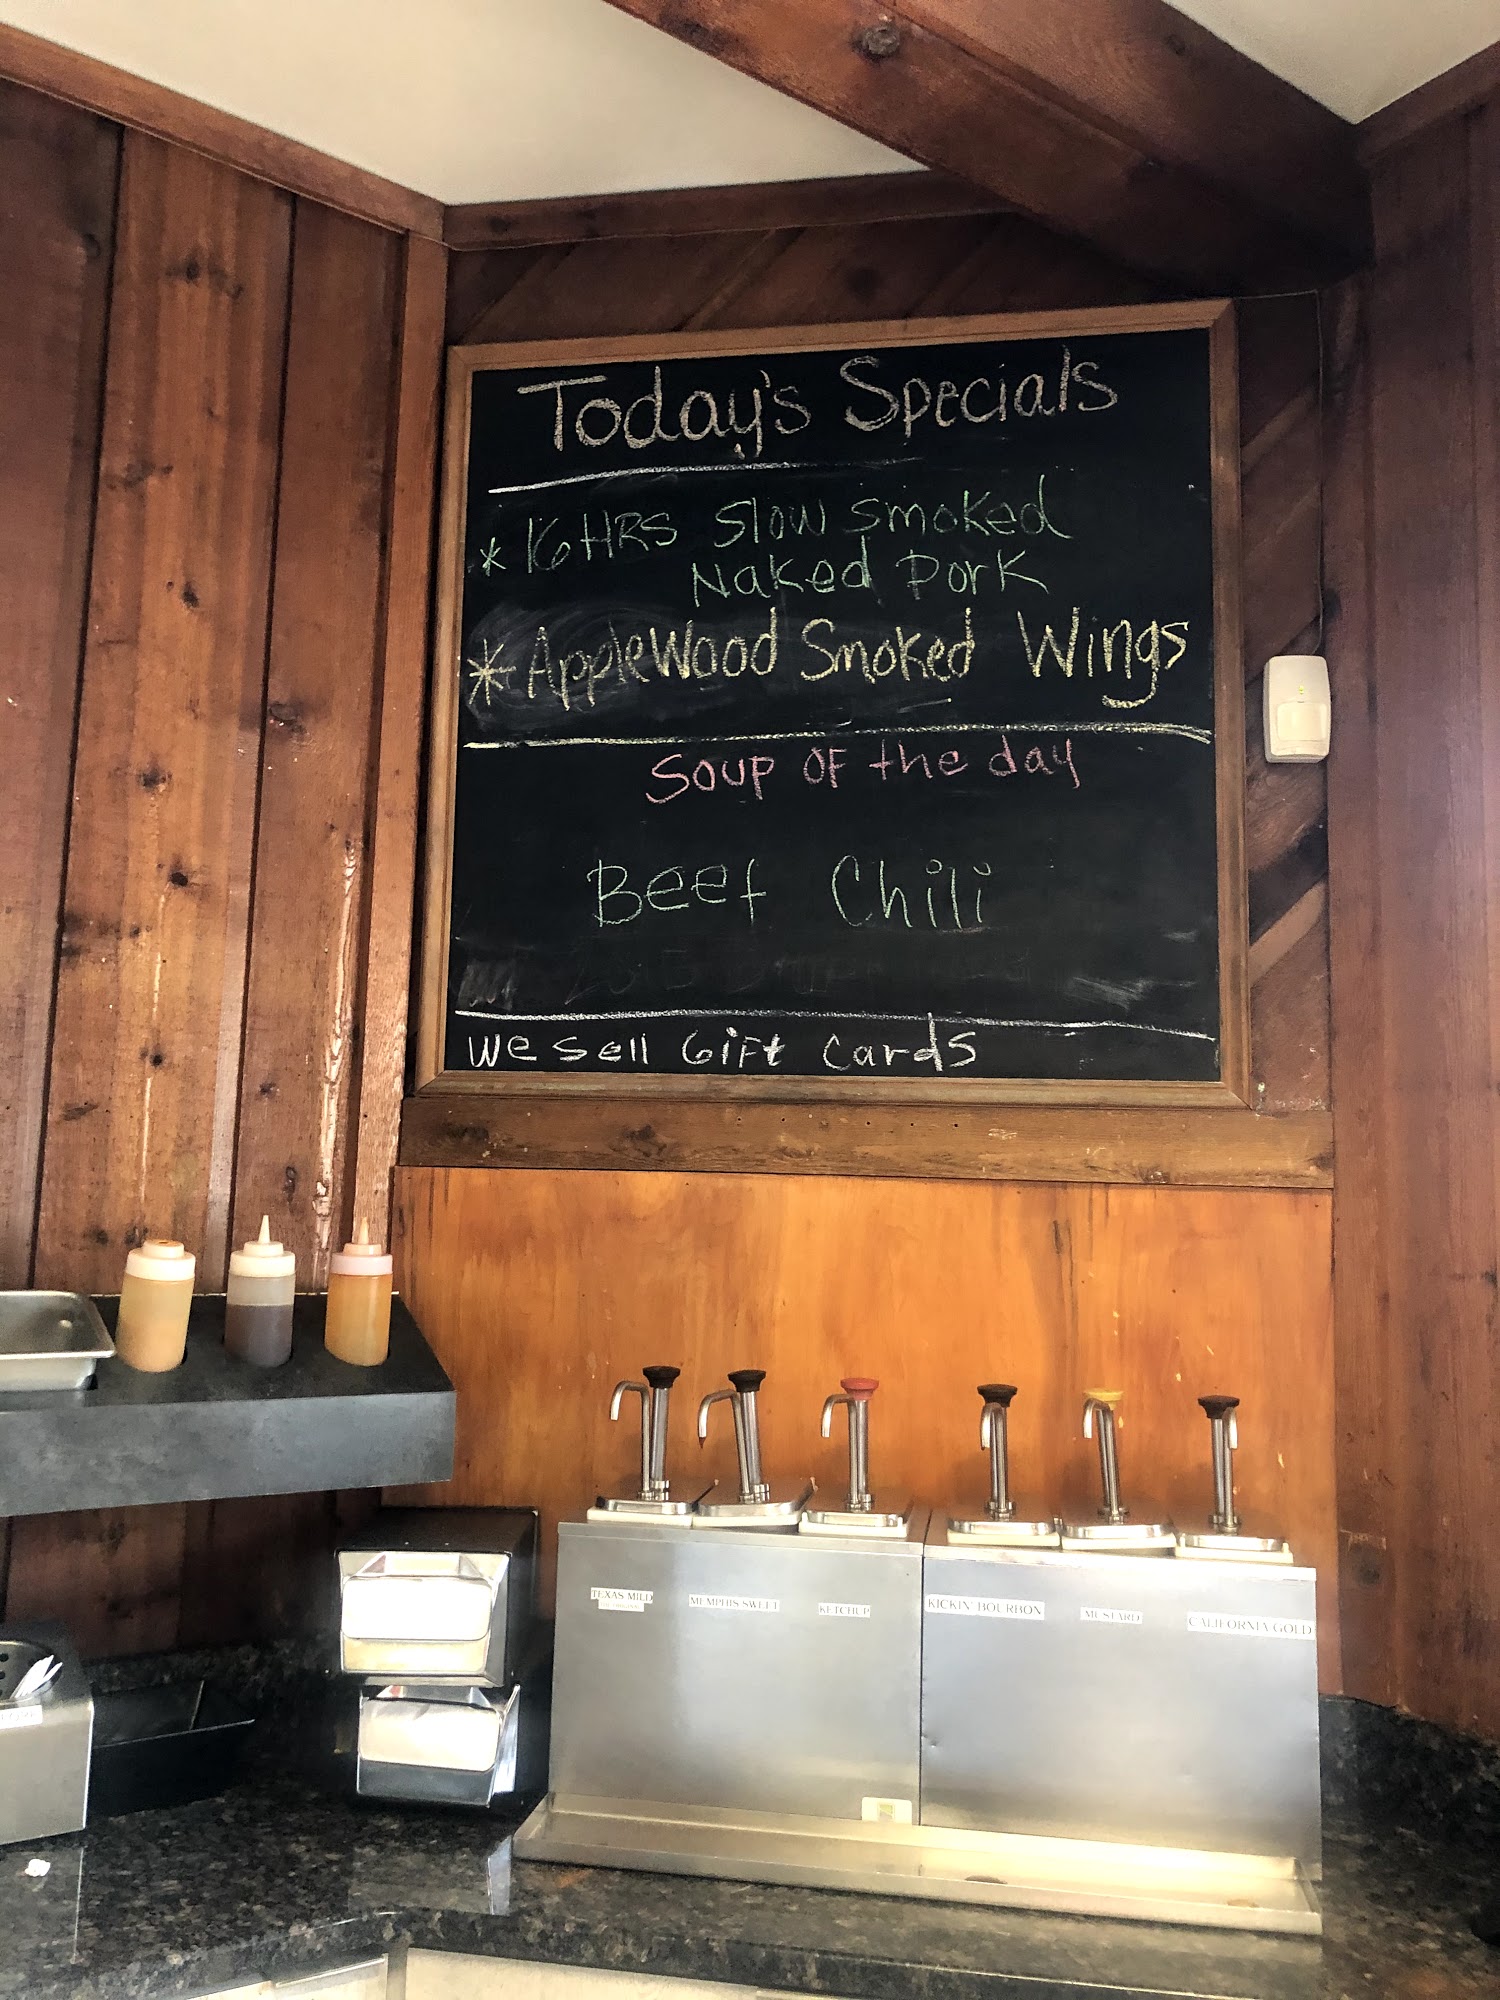 Today's Specials
* 16 HRS Slow smoked
Naked Pork
* AppleWood Smoked Wings
Soup of the day
Beef Chili
We sell Gift Cards
TEXAS MILD
MEMPHIS SWEET
KETCHUP
KICKIN' BOURBON
MUSTARD
CALIFORNIA GOLD